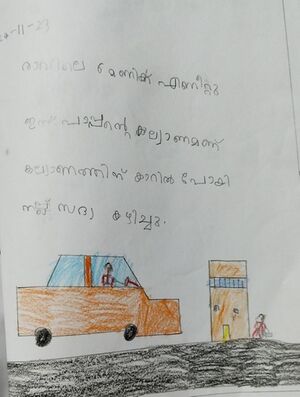 -11-23
രാവിലെ 6 മണിക്ക് എണീറ്റു
ഇന്ന് പാപ്പന്റെ കല്യാണമാണ്
കല്യാണത്തിന് കാറിൽ പോയി
സദ്യ കഴിച്ചു.